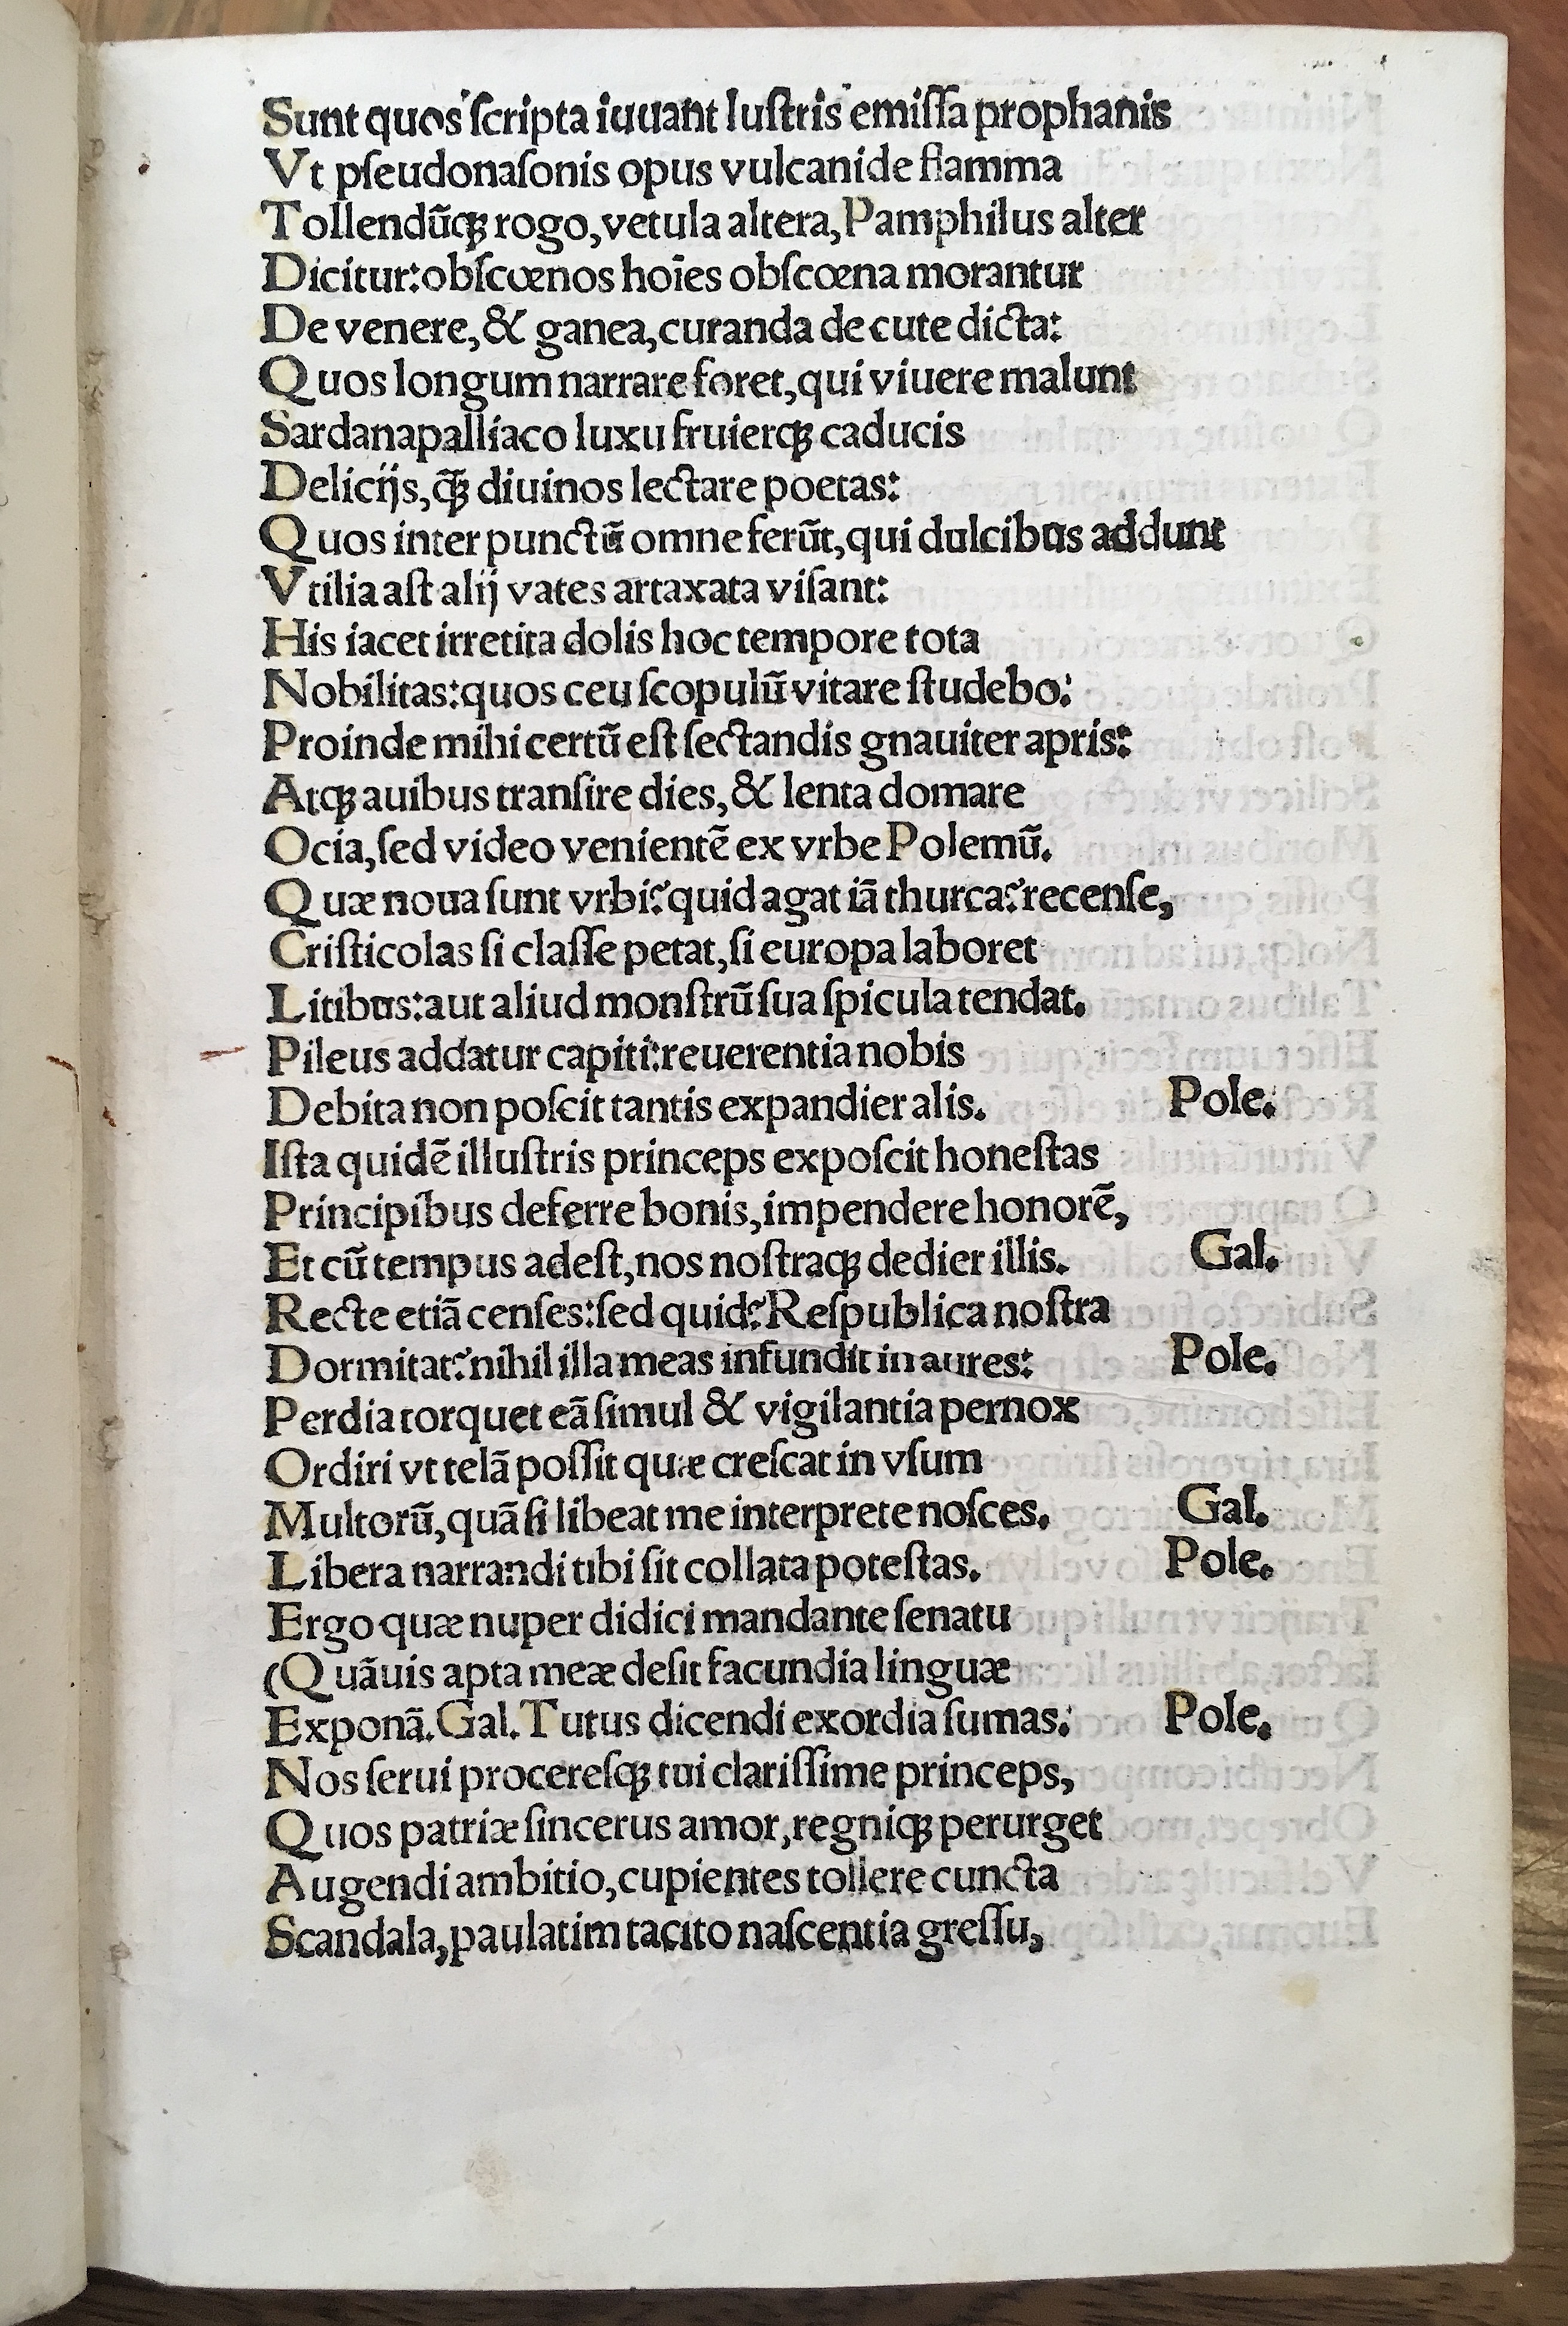 Sunt quos ſcripta iuuant luſtris emiſſa prophanis
Vt pſeudonaſonis opus vulcanide flamma
Tollendūqꝫ rogo,vetula altera,Pamphilus alter
Dicitur:obſcœnos hoīes obſcœna morantur
De venere,& ganea,curanda de cute dicta:
Quos longum narrare foret,qui viuere malunt
Sardanapalliaco luxu fruierqꝫ caducis
Delicijs,q̄ꝫ diuinos lectare poetas:
Quos inter punctū omne ferūt,qui dulcibus addunt
Vtilia aſt alij vates artaxata viſant:
His iacet irretita dolis hoc tempore tota
Nobilitas:quos ceu ſcopulū vitare ſtudebo:
Proinde mihi certū eſt ſectandis gnauiter apris:
Atqꝫ auibus tranſire dies,& lenta domare
Ocia,ſed video venientē ex vrbe Polemū.
Quæ noua ſunt vrbi?quid agat iā thurca?recenſe,
Criſticolas ſi claſſe petat,ſi europa laboret
Litibus:aut aliud monſtrū ſua ſpicula tendat.
Pileus addatur capiti:reuerentia nobis
Debita non poſcit tantis expandier alis. Pole.
Iſta quidē illuſtris princeps expoſcit honeſtas
Principibus deferre bonis,impendere honorē,
Et cū tempus adeſt,nos noſtraqꝫ dedier illis. Gal.
Recte etiā cenſes:ſed quid?Reſpublica noſtra
Dormitat?nihil illa meas infundit in aures: Pole.
Perdia torquet eā ſimul & vigilantia pernox
Ordiri vt telā poſſit quæ creſcat in vſum
Multorū,quā ſi libeat me interprete noſces. Gal.
Libera narrandi tibi ſit collata poteſtas. Pole.
Ergo quæ nuper didici mandante ſenatu
(Quāuis apta meæ deſit facundia linguæ
Exponā.Gal.Tutus dicendi exordia ſumas: Pole.
Nos ſerui procereſqꝫ tui clariſſime princeps,
Quos patriæ ſincerus amor,regniqꝫ perurget
Augendi ambitio,cupientes tollere cuncta
Scandala,paulatim tacito naſcentia greſſu,